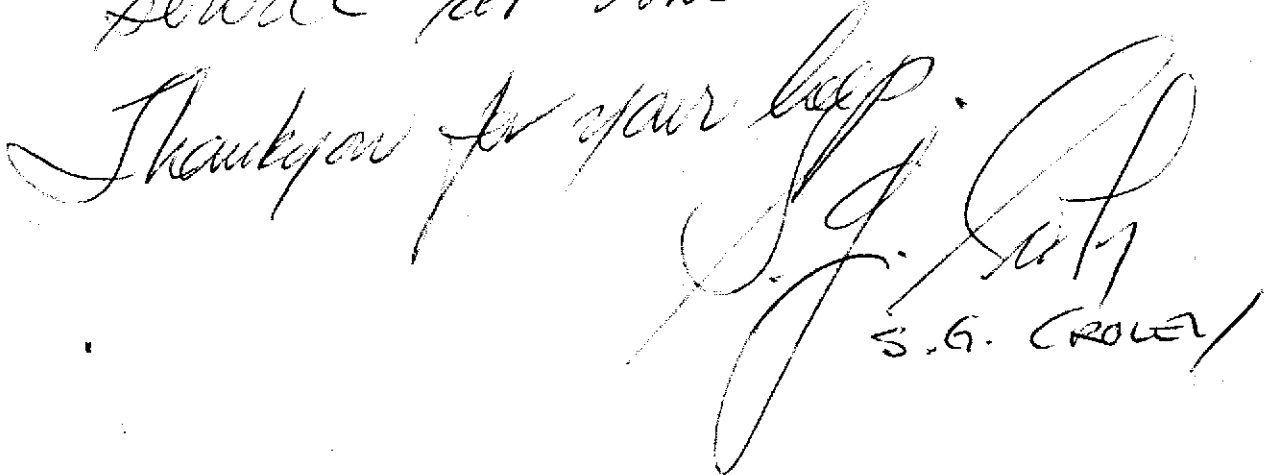 Thankyou for your help.
S.G. Croley
S.G. CROLEY